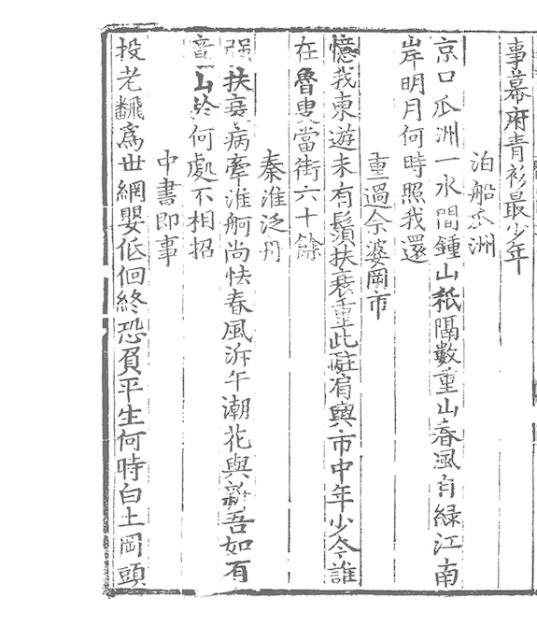 事幕府青衫最少年
泊船瓜洲
京口瓜洲一水間鍾山秪隔數重山春風自綠江南
岸明月何時照我還
重過余婆岡市
憶我東遊未有鬚扶衰重此駐肩輿市中年少今誰
在魯叟當街六十餘
秦淮泛舟
强扶衰病牽淮舸尚怯春風泝午潮花與新吾如有
意山於何處不相招
中書即事
投老翻爲世網嬰低佪終恐負平生何時白土岡頭